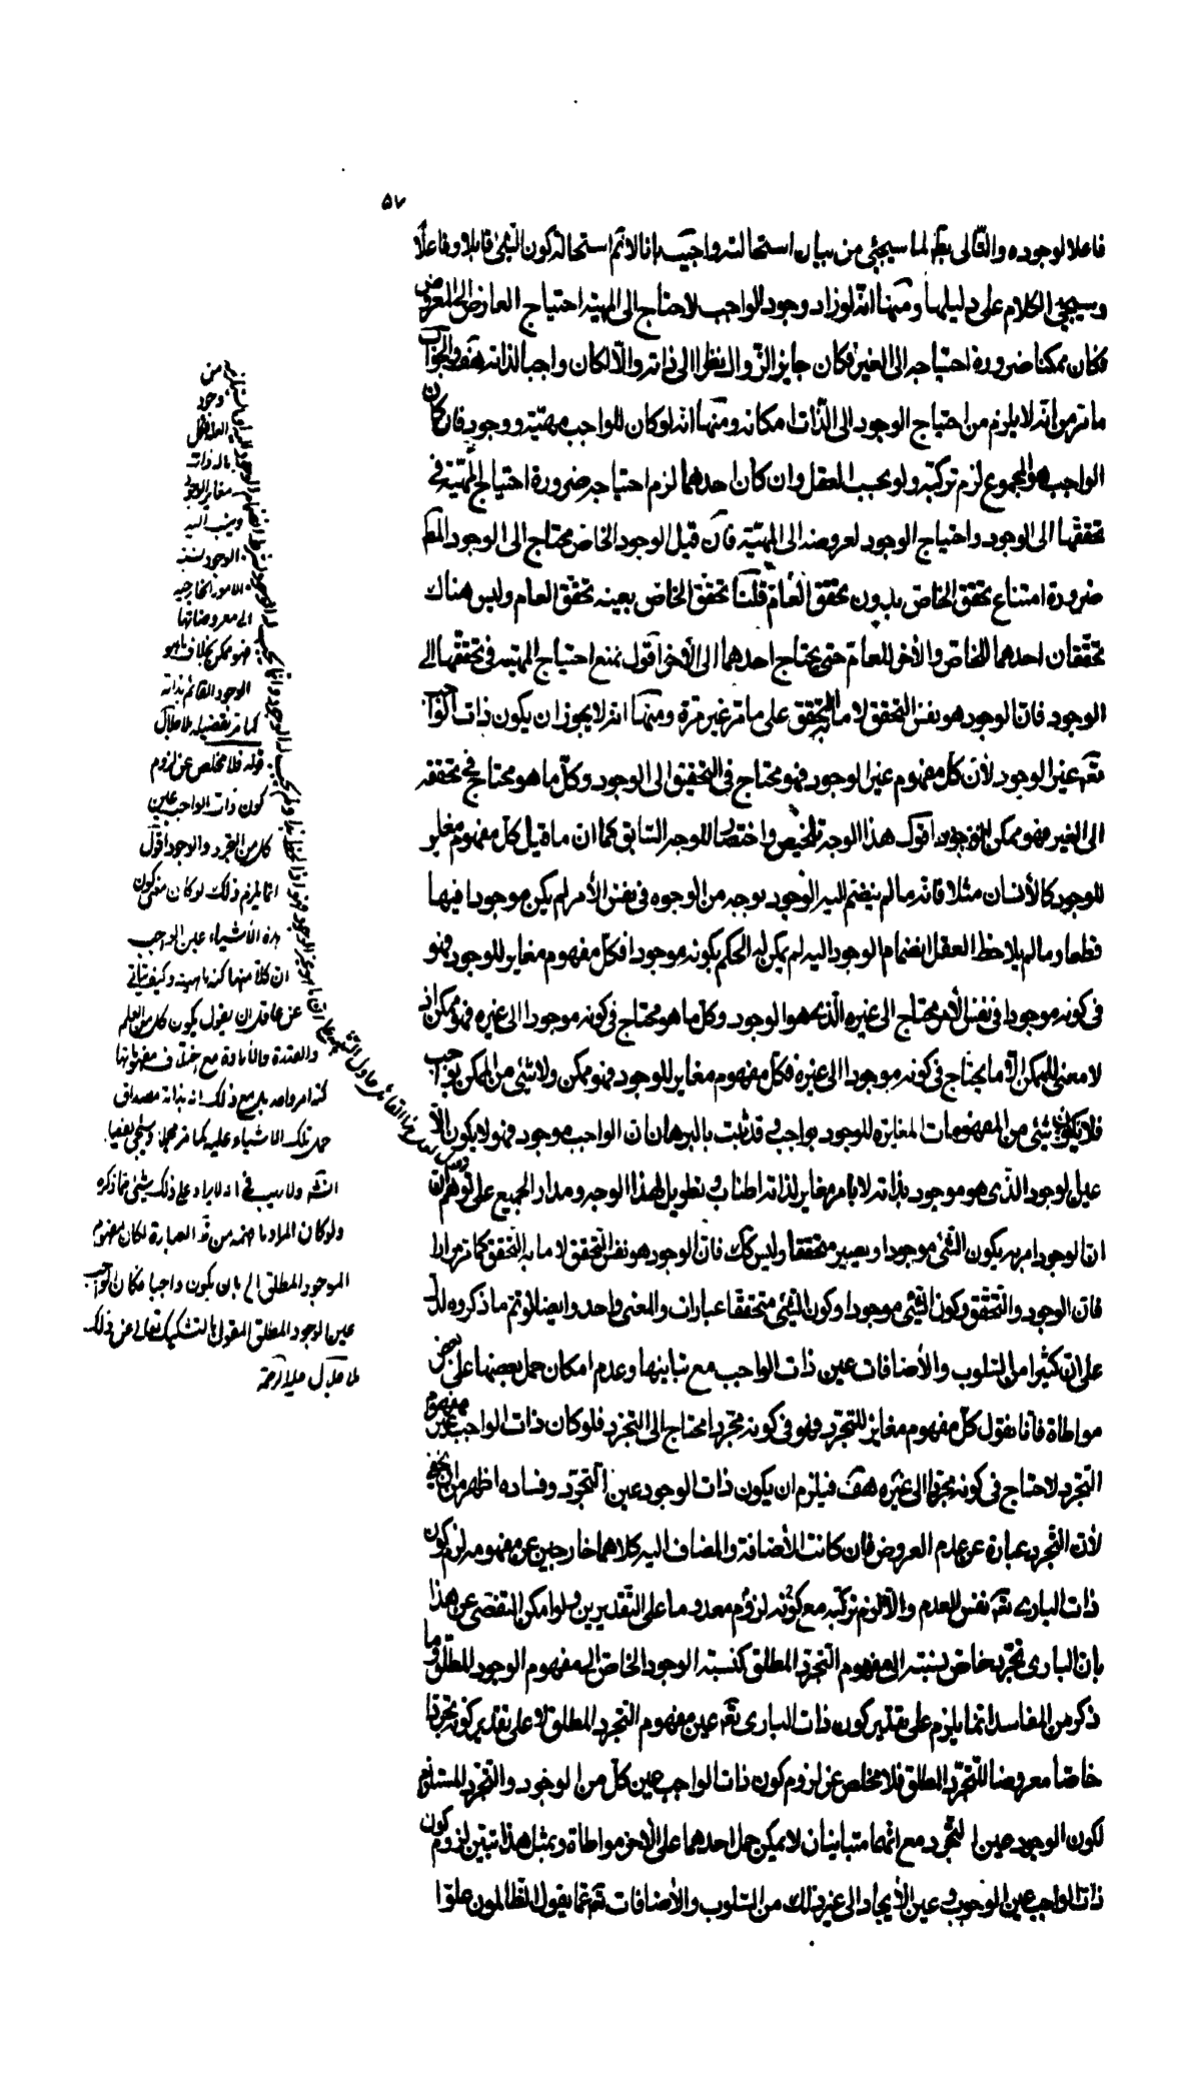 ٥٧
فاعلا لوجوده والتالى بط لما سيجيئ من بيان استحالته واجيب بانا لا نم استحالة كون الشئ قابلا وفاعلا
وسيجئ الكلام على دليلها ومنها انه لو زاد وجود الواجب لاحتاج الى المهية احتياج العارض الى المعروض
فكان ممكنا ضرورة احتياجه الى الغير فكان جايز الزوال نظرا الى ذاته والا لكان واجبا لذاته هف والجواب
ما مر من انه لا يلزم من احتياج الوجود الى الذات امكانه ومنها انه لو كان للواجب مهيّة ووجود فان كان
الواجب هو المجموع لزم تركبه ولو بحسب العقل وان كان احدهما لزم احتياجه ضرورة احتياج المهيّة فى
تحققها الى الوجود واحتياج الوجود لعروضه الى المهية فان قيل الوجود الخاص محتاج الى الوجود المط
ضرورة امتناع تحقق الخاص بدون تحقق العام قلنا تحقق الخاص بعينه تحقق العام وليس هناك
تحققان احدهما للخاص والأخر للعام حتى يحتاج احدهما الى الأخر اقول نمنع احتياج المهية فى تحققها الى
الوجود فان الوجود هو نفس التحقق لا ما به التحقق على ما مر غير مرة ومنها انه لا يجوز ان يكون ذات الواجب
تعه غير الوجود لأن كل مفهوم غير الوجود فهو محتاج فى التحقق الى الوجود وكل ما هو محتاج فى تحققه
الى الغير فهو ممكن اقول هذا الوجه تلخيص واختصار للوجه السابق كما ان ما قيل كل مفهوم مغاير
للوجود كالأنسان مثلا فانه ما لم ينضم اليه الوجود بوجه من الوجوه فى نفس الأمر لم يكن موجودا فيها
قطعا وما لم يلاحظ العقل انضمام الوجود اليه لم يمكن له الحكم بكونه موجودا فكل مفهوم مغاير للوجود فهو
فى كونه موجودا فى نفس الأمر محتاج الى غيره الذى هو الوجود وكل ما هو محتاج فى كونه موجودا الى غيره فهو ممكن اذ
لا معنى للممكن الا ما يحتاج فى كونه موجودا الى غيره فكل مفهوم مغاير للوجود فهو ممكن ولا شئ من الممكن بواجب
فلا يكون شئ من المفهومات المغايرة للوجود بواجب وقد ثبت بالبرهان ان الواجب موجود فهو لا يكون الا
عين الوجود الذى هو موجود بذاته لا بامر مغاير لذاته اطناب وتطويل لهذا الوجه ومدار الجميع على توهم
ان الوجود امر به يكون الشئ موجودا ويصير متحققا وليس كك فان الوجود هو نفس التحقق لا ما به التحقق كما مر مرارا
فان الوجود والتحقق وكون الشئ موجودا وكون الشئ متحققا عبارات والمعنى واحد وايضا لو تم ما ذكروه لدل
على ان كثيرا من السلوب والأضافات عين ذات الواجب مع تباينها وعدم امكان حمل بعضها على بعض
مواطاة فانا نقول كل مفهوم مغاير للتجرد فهو فى كونه مجردا محتاج الى التجرد فلو كان ذات الواجب غير مفهوم
التجرد لاحتاج فى كونه مجردا الى غيره هف فيلزم ان يكون ذات الوجود عين التجرد وفساده اظهر من ان يخفى
لأن التجرد عبارة عن عدم العروض فان كانت الأضافة والمضاف اليه كلاهما خارجين عن مفهومه لزم كون
ذات البارى تعه نفس العدم والا لزم تركبه مع كونه لزوم معدوما على التقديرين ولو امكن التفصى عن هذا
بان البارى تجرد خاص نسبته الى مفهوم التجرد المطلق كنسبة الوجود الخاص الى مفهوم الوجود المطلق وما
ذكر من المفاسد انما يلزم على تقدير كون ذات البارى تعه عين مفهوم التجرد المطلق لا على تقدير كونه تجردا
خاصا معروضا للتجرد المطلق فلا مخلص عن لزوم كون ذات الواجب عين كل من الوجود والتجرد المستلزم
لكون الوجود عين التجرد مع انهما متباينان لا يمكن حمل احدهما على الأخر مواطاة وبمثل هذا تبين لزوم كون
ذات الواجب عين الوجوب وعين الأيجاد الى غير ذلك من السلوب والأضافات تعه عما يقول الظالمون علوّا
من
وجود
بالذاته
مغاير الوجود
وينسب اليه
الوجود نسبة
الامور الخارجيه
الى معروضاتها
فهو ممكن بخلاف ما هو
الوجود القائم بذاته
كما مر تفصيله ملا جلال
قوله فلا مخلص عن لزوم
كون ذات الواجب عين
كل من التجرد والوجود اقول
انما يلزم ذلك لو كان معنى كون
هذه الأشياء عين الواجب
ان كلا منها كنه ماهيته وكيف يتاتى
عن عاقل ان يقول بكون كل من العلم
والقدرة والأرادة مع اختلاف مفهوماتها
كنه امر واحد بل مع ذلك انه بذاته مصداق
حمل تلك الاشياء عليه كما مر مجملا وسيجئ تفصيلا
انشه ولا ريب فى انه لا يراد على ذلك شئ مما ذكره
ولو كان المراد ما فهمه من هذه العبارة لكان مفهوم
الموجود المطلق الى بان يكون واجبا فكان الواجب
عين الوجود المطلق المقول بالتشكيك تعالى عن ذلك
ملا جلال عليه الرحمة